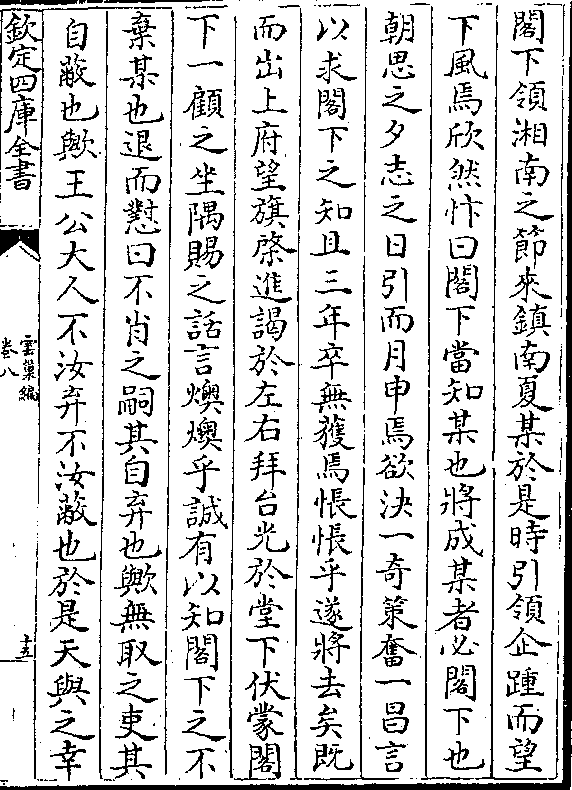 閣下領湘南之節來鎮南夏某於是時引領企踵而望
下風焉欣然忭曰閣下當知某也將成某者必閣下也
朝思之夕志之日引而月申焉欲決一奇策奮一昌言
以求閣下之知且三年卒無獲焉悵悵乎遂將去矣既
而出上府望旗棨進謁於左右拜台光於堂下伏蒙閣
下一顧之坐隅賜之話言燠燠乎誠有以知閣下之不
棄某也退而懟曰不肖之嗣其自弃也歟無取之吏其
自蔽也歟王公大人不汝弃不汝蔽也於是天與之幸
欽定四庫全書
雲巢編
卷八
十五